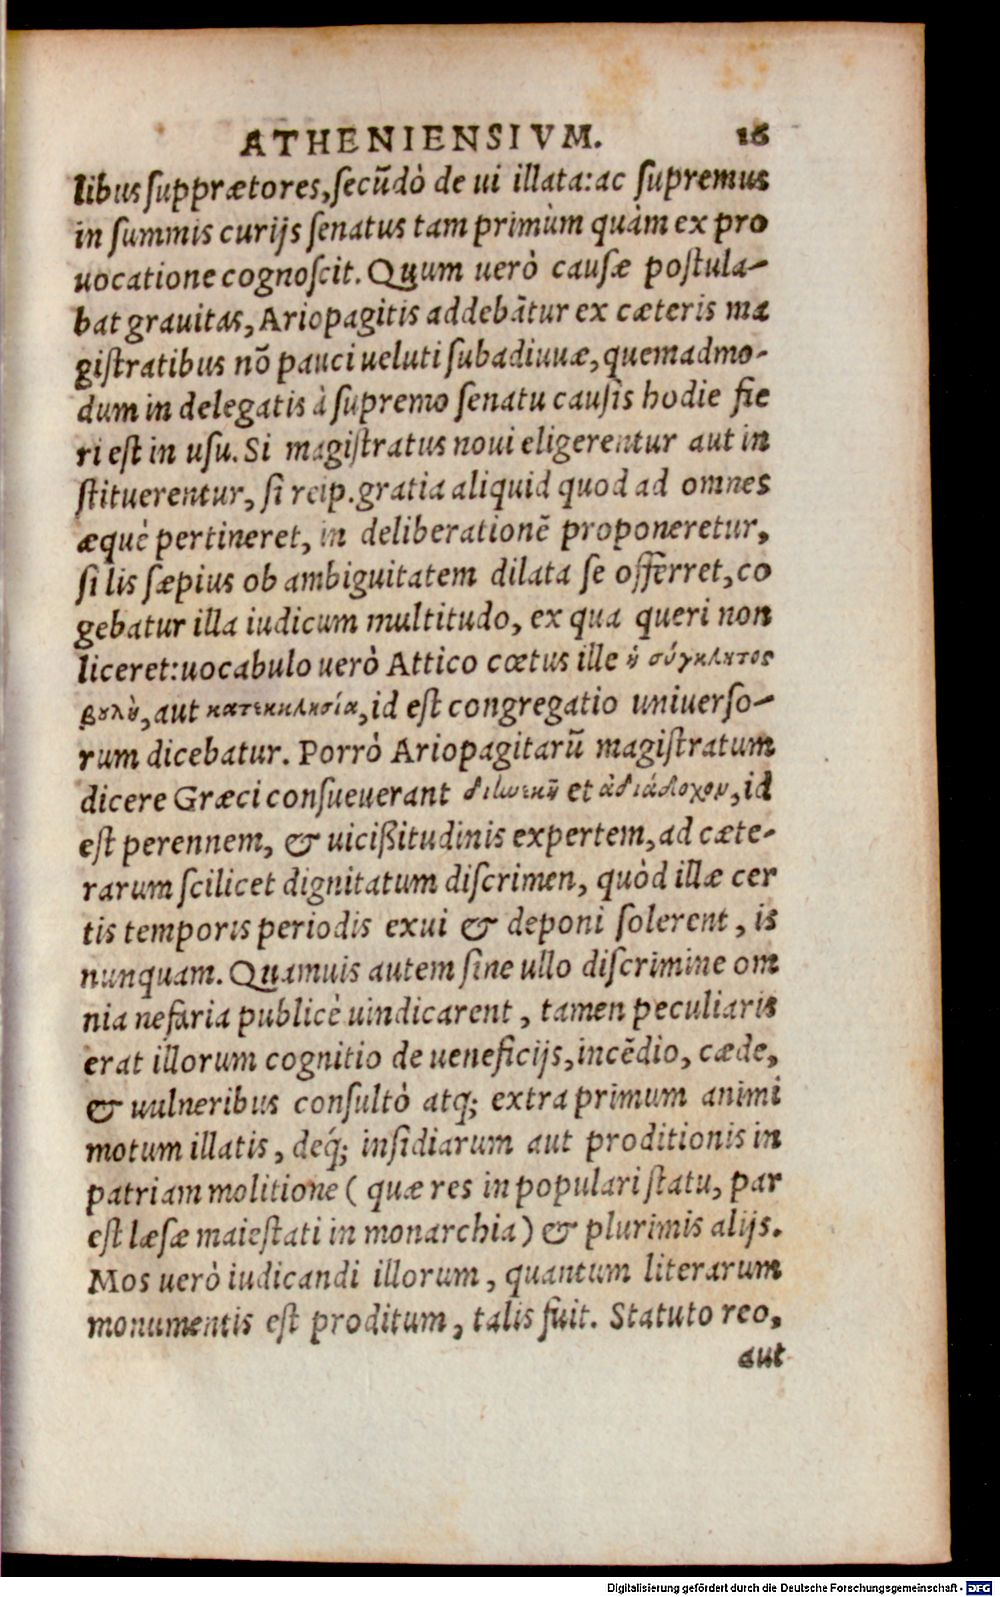 ATHENIENSIVM. 16
libus supprætores, secũdò de ui illata: ac supremus
in summis curijs senatus tam primùm quàm ex pro
uocatione cognoscit. Quum uerò causæ postula-
bat grauitas, Ariopagitis addebãtur ex cæteris ma
gistratibus nõ pauci ueluti subadiuuæ, quemadmo-
dum in delegatis à supremo senatu causis hodie fie
ri est in usu. Si magistratus noui eligerentur aut in
stituerentur, si reip. gratia aliquid quod ad omnes
æquè pertineret, in deliberationẽ proponeretur,
si lis sæpius ob ambiguitatem dilata se offerret, co
gebatur illa iudicum multitudo, ex qua queri non
liceret: uocabulo uerò Attico cœtus ille ἡ σύγκλητος
βουλὴ, aut κατεκκλησία, id est congregatio uniuerso-
rum dicebatur. Porrò Ariopagitarũ magistratum
dicere Græci consueuerant et ἀδιάδοχον, id
est perennem, & uicißitudinis expertem, ad cæte-
rarum scilicet dignitatum discrimen, quòd illæ cer
tis temporis periodis exui & deponi solerent, is
nunquam. Quamuis autem sine ullo discrimine om
nia nefaria publicè uindicarent, tamen peculiaris
erat illorum cognitio de ueneficijs, incẽdio, cæde,
& uulneribus consultò atq; extra primum animi
motum illatis, deq́; insidiarum aut proditionis in
patriam molitione ( quæ res in populari statu, par
est læsæ maiestati in monarchia ) & plurimis alijs.
Mos uerò iudicandi illorum, quantum literarum
monumentis est proditum, talis fuit. Statuto reo,
aut
Digitalisierung gefördert durch die Deutsche Forschungsgemeinschaft - DFG